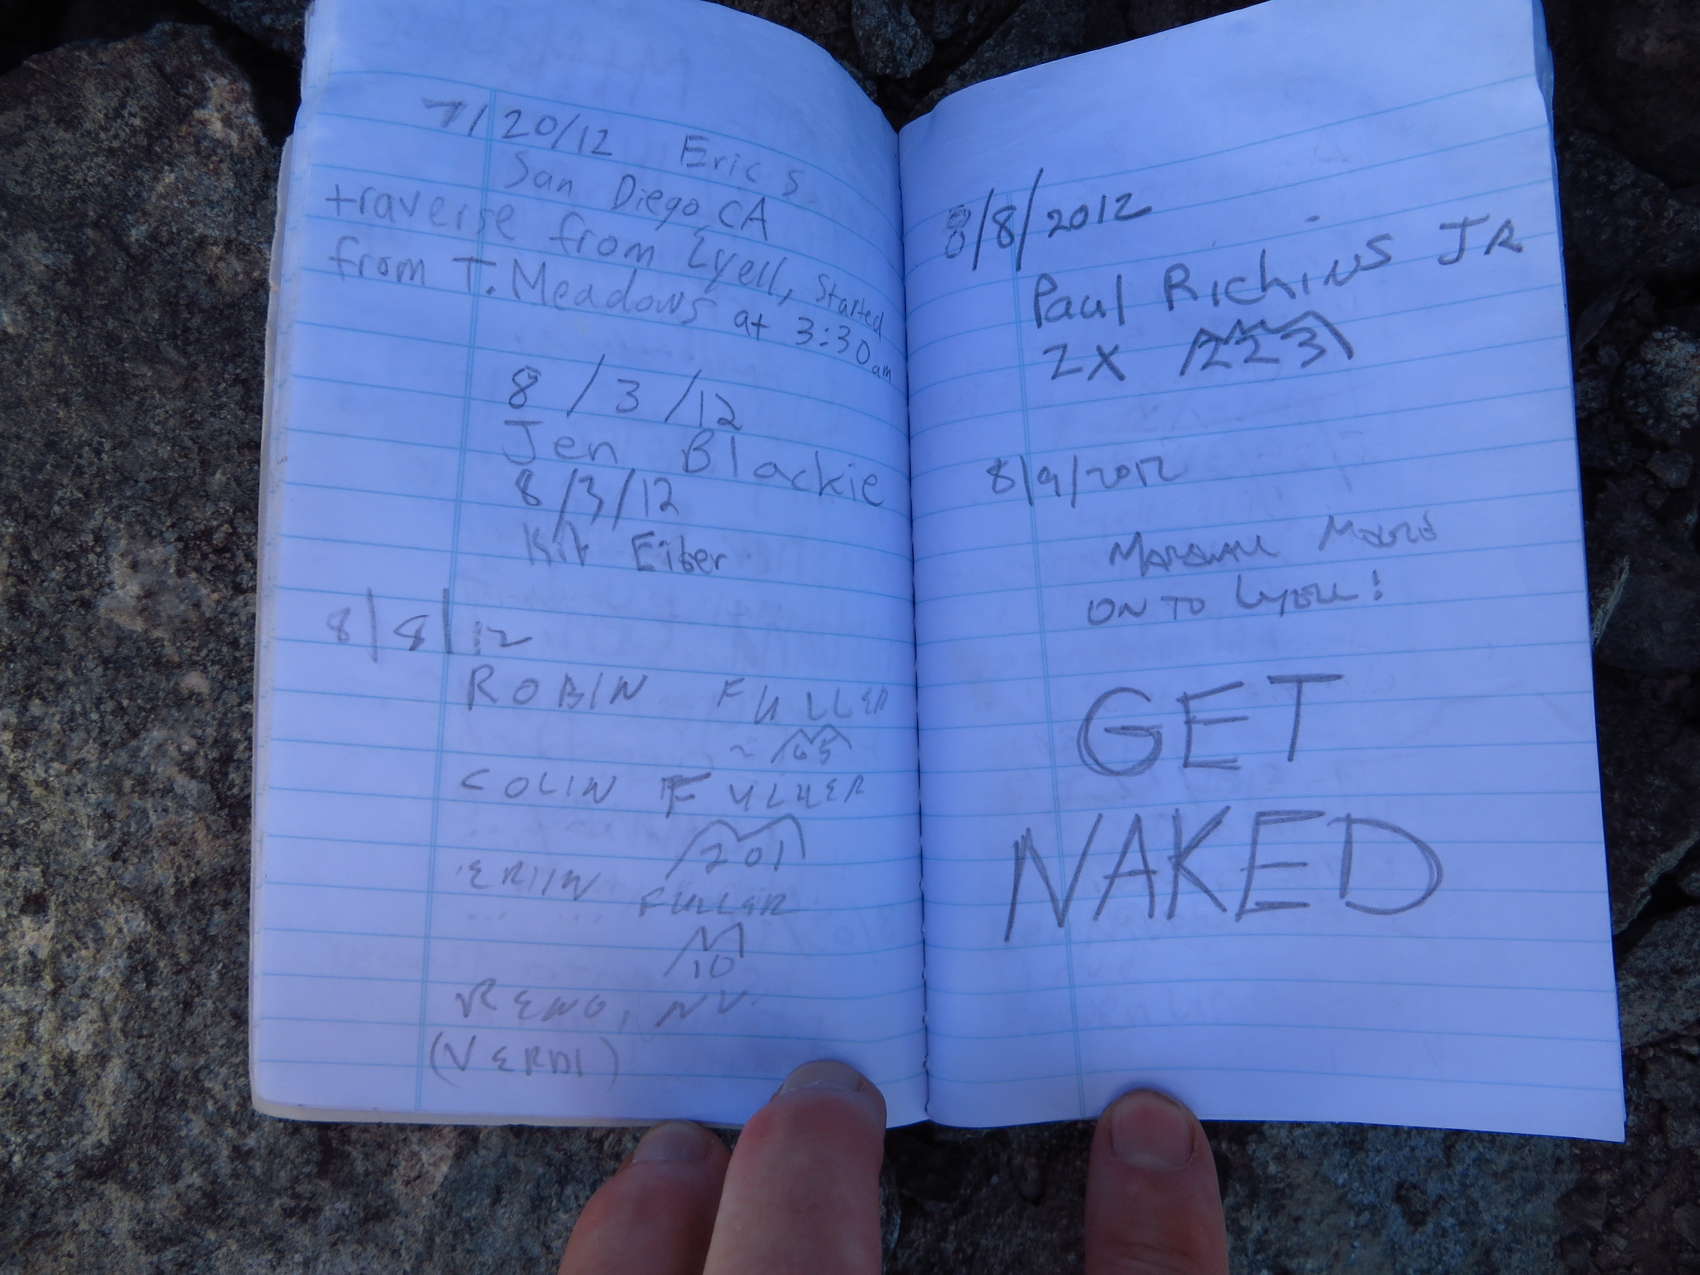 7/20/12 Eric S.
San Diego, CA
traverse from Lyell, Started
from T. Meadows at 3:30am
8/3/12
Jen Blackie
8/3/12
Kit Eiber
8/8/12
ROBIN FULLER
~65
COLIN FULLER
201
FULLER
10
RENO, NV.
(VERDI)
8/8/2012
Paul Richins JR
2X 223
8/9/2012
ON TO LYELL!
GET
NAKED